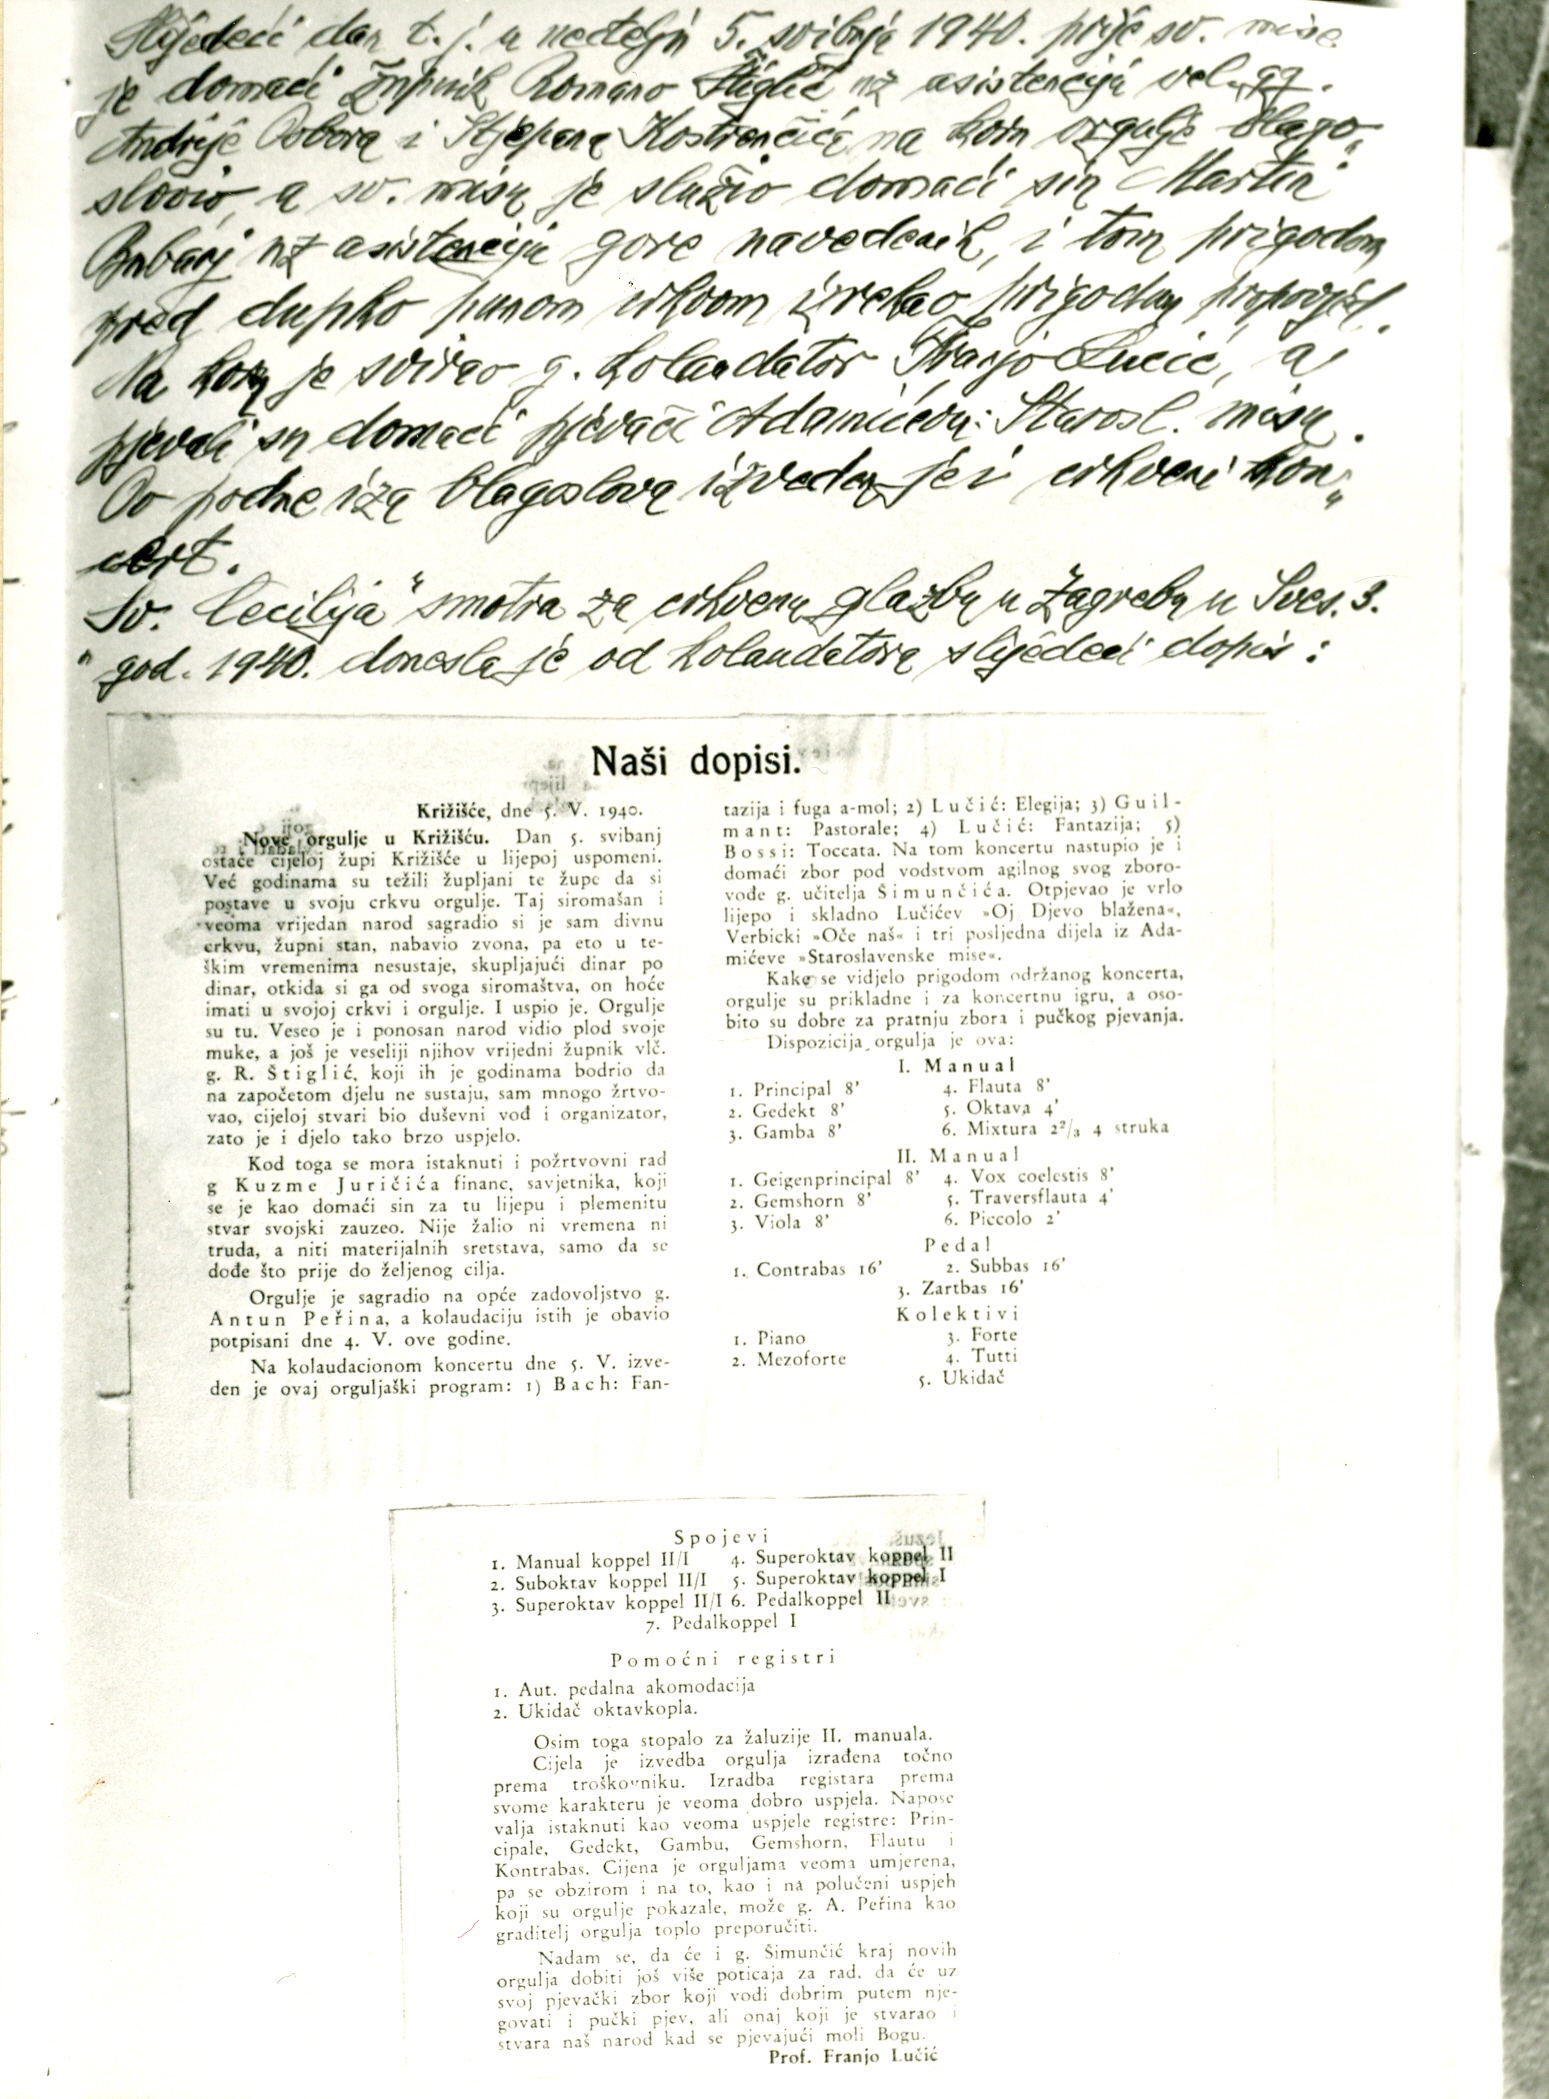 Slijedeći dan t. j. u nedelju 5. svibnja 1940. prije sv. mise
je domaći župnik Romano Štiglić uz asistenciju vel. gg.
Andrije i Stjepana Kostrenčića na koru orgulje blago„
slovio, a sv. misu je služio domaći sin Martin
Bubanj uz asistenciju gore navedenih, i tom prigodom
pred dupko punom crkvom izrekao prigodnu propovijed.
Na koru je svirao g. kolaudator Franjo Lučić, a
pjevali su domaći pjevači Adamićevu: Starosl. misu.
Po podne iza blagoslova izveden je i crkveni kon„
cert.
Sv. Cecilija“ smotra za crkvenu glazbu u Zagrebu u Sves. 3.
„ god. 1940. donesla je od kolaudatora slijedeći dopis:
Naši dopisi.
Križišće, dne 5. V. 1940.
Nove orgulje u Križišću. Dan 5. svibanj
ostaće cijeloj župi Križišće u lijepoj uspomeni.
Već godinama su težili župljani te župe da si
postave u svoju crkvu orgulje. Taj siromašan i
veoma vrijedan narod sagradio si je sam divnu
crkvu, župni stan, nabavio zvona, pa eto u te-
škim vremenima nesustaje, skupljajući dinar po
dinar, otkida si ga od svoga siromaštva, on hoće
imati u svojoj crkvi i orgulje. I uspio je. Orgulje
su tu. Veseo je i ponosan narod vidio plod svoje
muke, a još je veseliji njihov vrijedni župnik vlč.
g. R. Štiglić, koji ih je godinama bodrio da
na započetom djelu ne sustaju, sam mnogo žrtvo-
vao, cijeloj stvari bio duševni vođ i organizator,
zato je i djelo tako brzo uspjelo.
Kod toga se mora istaknuti i požrtvovni rad
g Kuzme Juričića financ, savjetnika, koji
se je kao domaći sin za tu lijepu i plemenitu
stvar svojski zauzeo. Nije žalio ni vremena ni
truda, a niti materijalnih sretstava, samo da se
dođe što prije do željenog cilja.
Orgulje je sagradio na opće zadovoljstvo g.
Antun Peřina, a kolaudaciju istih je obavio
potpisani dne 4. V. ove godine.
Na kolaudacionom koncertu dne 5. V. izve-
den je ovaj orguljaški program: 1) Bach: Fan-
tazija i fuga a-mol; 2) Lučić: Elegija; 3) Guil-
mant: Pastorale; 4) Lučić: Fantazija; 5)
Bossi: Toccata. Na tom koncertu nastupio je i
domaći zbor pod vodstvom agilnog svog zboro-
vođe g. učitelja Šimunčića. Otpjevao je vrlo
lijepo i skladno Lučićev »Oj Djevo blažena«,
Verbicki »Oče naš« i tri posljedna dijela iz Ada-
mićeve »Staroslavenske mise«.
Kako se vidjelo prigodom održanog koncerta,
orgulje su prikladne i za koncertnu igru, a oso-
bito su dobre za pratnju zbora i pučkog pjevanja.
Dispozicija orgulja je ova:
I. Manual
1. Principal 8’ 4. Flauta 8’
2. Gedekt 8’ 5. Oktava 4’
3. Gamba 8’ 6. Mixtura 2²/₃ 4 struka
II. Manual
1. Geigenprincipal 8’ 4. Vox coelestis 8’
2. Gemshorn 8’ 5. Traversflauta 4’
3. Viola 8’ 6. Piccolo 2’
Pedal
1. Contrabas 16’ 2. Subbas 16’
3. Zartbas 16’
Kolektivi
1. Piano 3. Forte
2. Mezoforte 4. Tutti
5. Ukidač
Spojevi
1. Manual koppel II/I 4. Superoktav koppel II
2. Suboktav koppel II/I 5. Superoktav koppel I
3. Superoktav koppel II/I 6. Pedalkoppel II
7. Pedalkoppel I
Pomoćni registri
1. Aut. pedalna akomodacija
2. Ukidač oktavkopla.
Osim toga stopalo za žaluzije II. manuala.
Cijela je izvedba orgulja izrađena točno
prema troškovniku. Izradba registara prema
svome karakteru je veoma dobro uspjela. Napose
valja istaknuti kao veoma uspjele registre: Prin-
cipale, Gedekt, Gambu, Gemshorn, Flautu i
Kontrabas. Cijena je orguljama veoma umjerena,
pa se obzirom i na to, kao i na polučeni uspjeh
koji su orgulje pokazale, može g. A. Peřina kao
graditelj orgulja toplo preporučiti.
Nadam se, da će i g. Šimunčić kraj novih
orgulja dobiti još više poticaja za rad, da će uz
svoj pjevački zbor koji vodi dobrim putem nje-
govati i pučki pjev, ali onaj koji je stvarao i
stvara naš narod kad se pjevajući moli Bogu.
Prof. Franjo Lučić